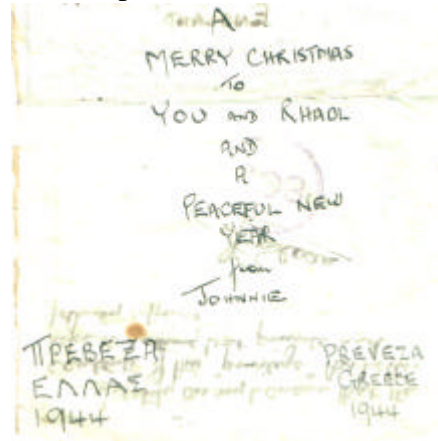 A
MERRY CHRISTMAS
TO
YOU AND RHAOL
AND
A
PEACEFUL NEW
YEAR
from
JOHNNIE
ΠΡΕΒΕΖΑ
ΕΛΛΑΣ
1944
PREVEZA
GREECE
1944